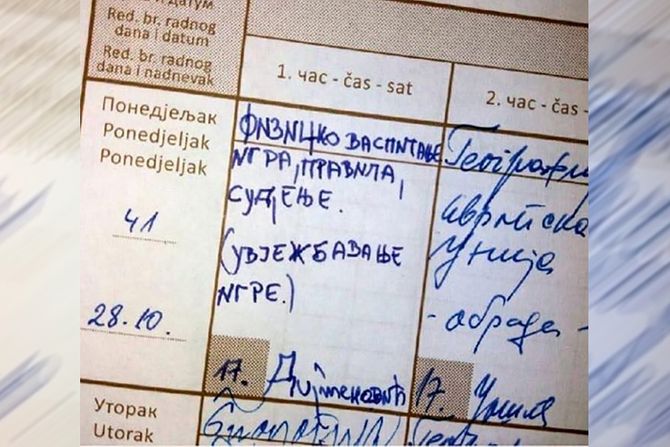 и датум
Red. br. radnog
dana i datum
Red. br. radnog
dana i nadnevak
1. час - čas - sat
2. час - čas -
Понедјељак
Ponedjeljak
Ponedjeljak
41
28.10.
ФИЗИЧКО ВАСПИТАЊЕ
ИГРА, ПРАВИЛА,
СУДЈЕЊЕ.
(УВЈЕЖБАВАЊЕ
ИГРЕ.)
17.
Географи
Европска
Унија
- обрада -
17.
Уторак
Utorak